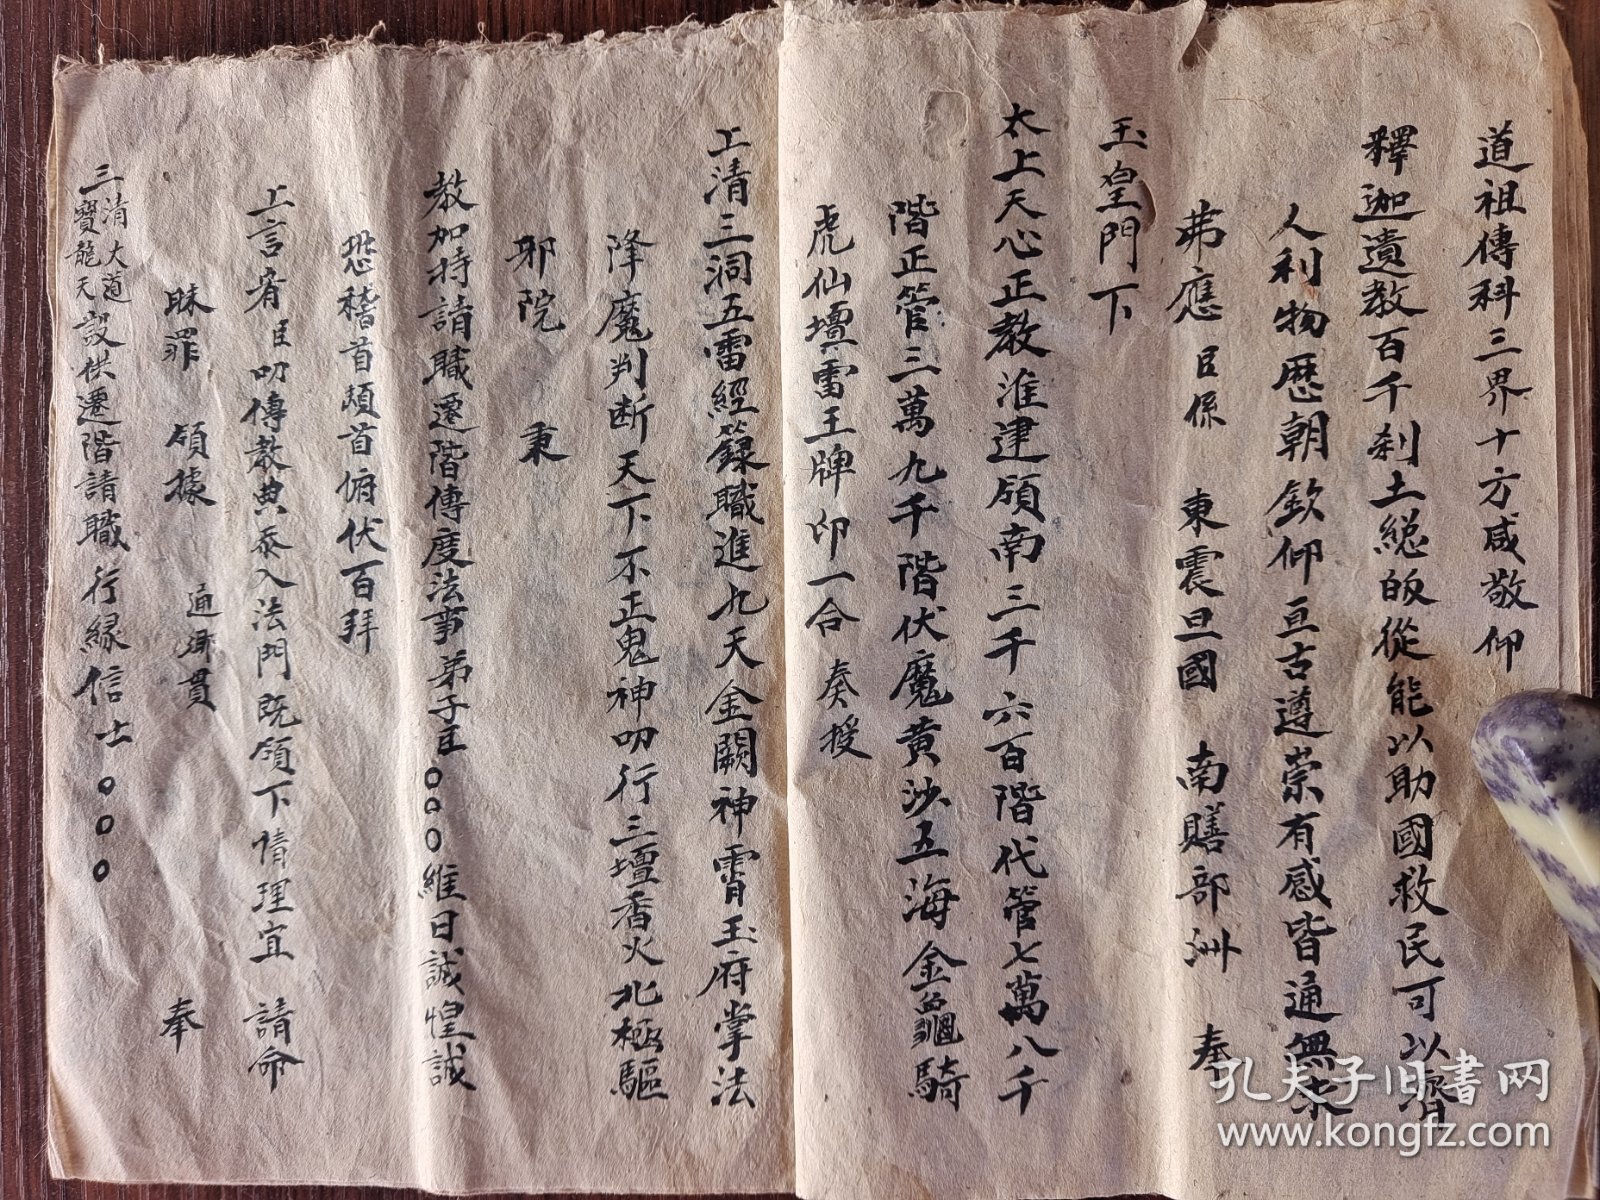 道祖傳科三界十方咸敬仰
釋迦遺教百千剎土総皈從能以助國救民可以濟
人利物歷朝欽仰亘古遵崇有感皆通無求
弗應 臣係 東震旦國 南贍部洲 奉
玉皇門下
太上天心正教淮建領南三千六百階代管七萬八千
階正管三萬九千階伏魔黄沙五海金龜騎
虎仙壇雷王牌印一合 奏授
上清三洞五雷經籙職進九天金闕神霄玉府掌法
降魔判断天下不正鬼神叨行三壇香火北極驅
邪院 秉
教加持請職遷階傳度法事弟子臣○○○維日誠惶誠
恐稽首頓首俯伏百拜
上言育臣叨傳教典忝入法門既領下情理宜 請命
昧罪 領據 通鄉貫 奉
三清大道
三寶龍天 設供遷階請職 行緣信士○○○
孔夫子旧書网
www.kongfz.com